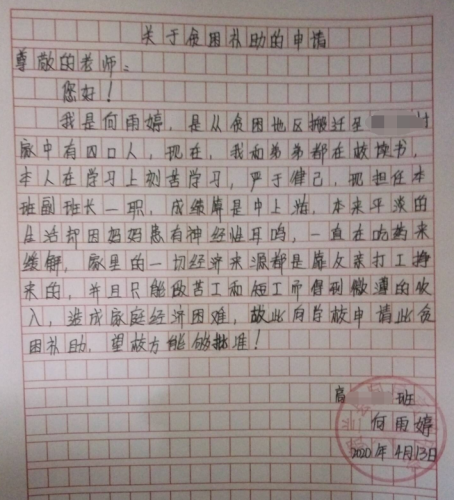 关于贫困补助的申请
尊敬的老师：
您好！
我是何雨婷，是从贫困地区搬迁至 村
家中有四口人，现在，我和弟弟都在校读书，
本人在学习上刻苦学习，严于律己，现担任本
班副班长一职，成绩算是中上游，本来平淡的
生活却因妈妈患有神经性耳鸣，一直在吃药来
缓解，家里的一切经济来源都是靠父亲打工挣
来的，并且只能做苦工和短工所得到微薄的收
入，造成家庭经济困难，故此向学校申请此贫
困补助，望校方能够批准！
高 班
何雨婷
2020年4月13日